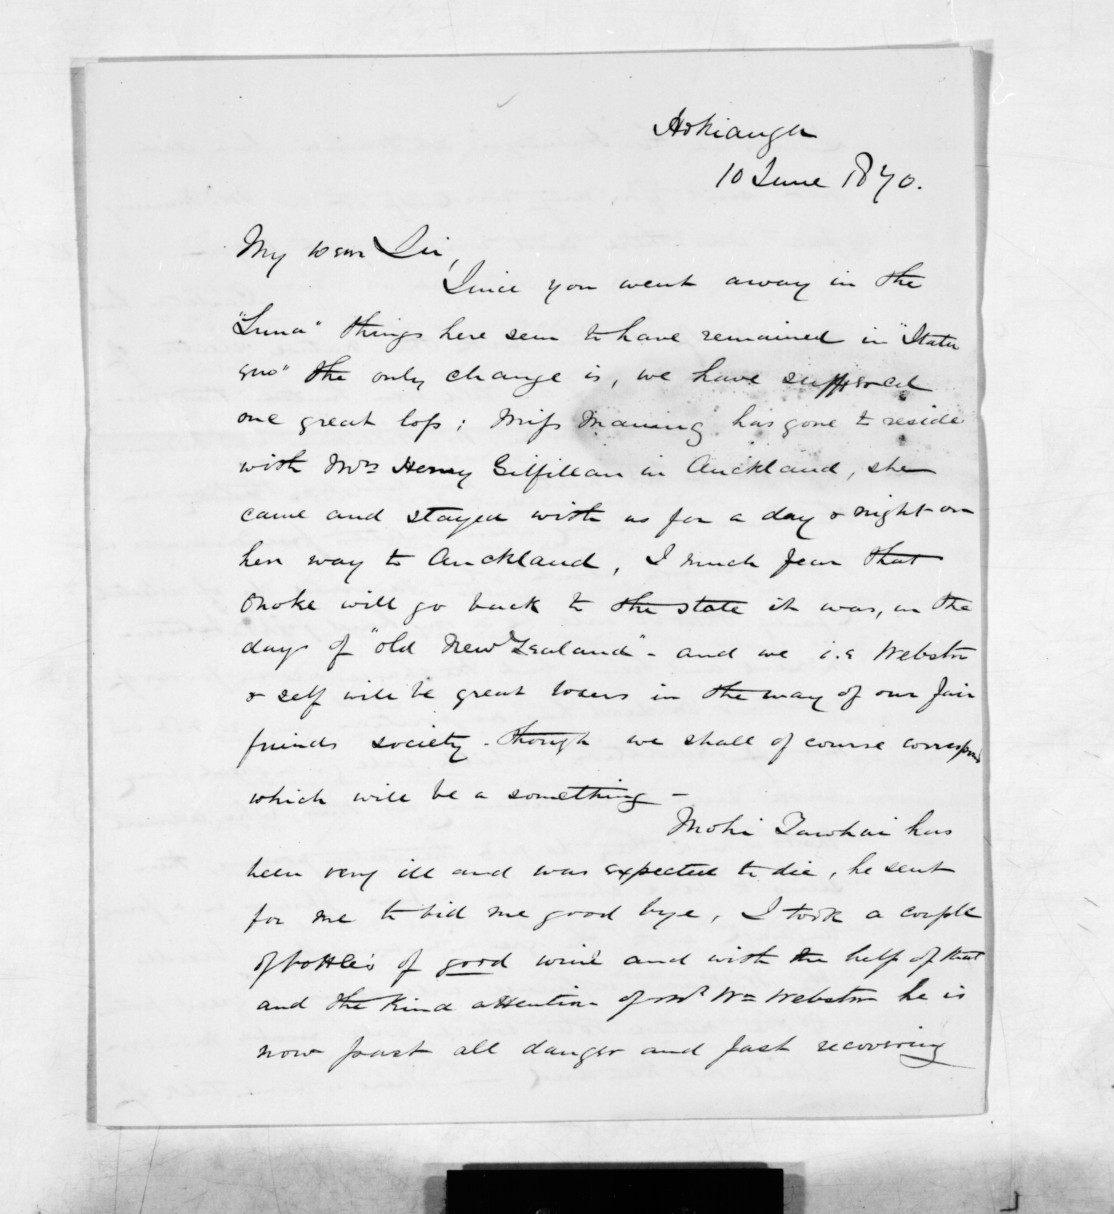 Hokianga
10 June 1870.
My dear Sir,
Since you went away in the
"Luna" things here seem to have remained in "Statu
quo" the only change is, we have suffered
one great loss; Miss Maning has gone to reside
with Mrs Henry Gilfillan in Auckland, she
came and stayed with us for a day & night on
her way to Auckland, I much fear that
Onoke will go back to the state it was, in the
days of "old New Zealand" - and we i.e Webster
& self will be great losers in the way of our fair
friends society - though we shall of course correspond
which will be a something -
Mohi Tawhai has
been very ill and was expected to die, he sent
for me to bid me good bye, I took a couple
of bottles of good wine and with the help of that
and the kind attention of Mr Wm Webster he is
now past all danger and fast recovering